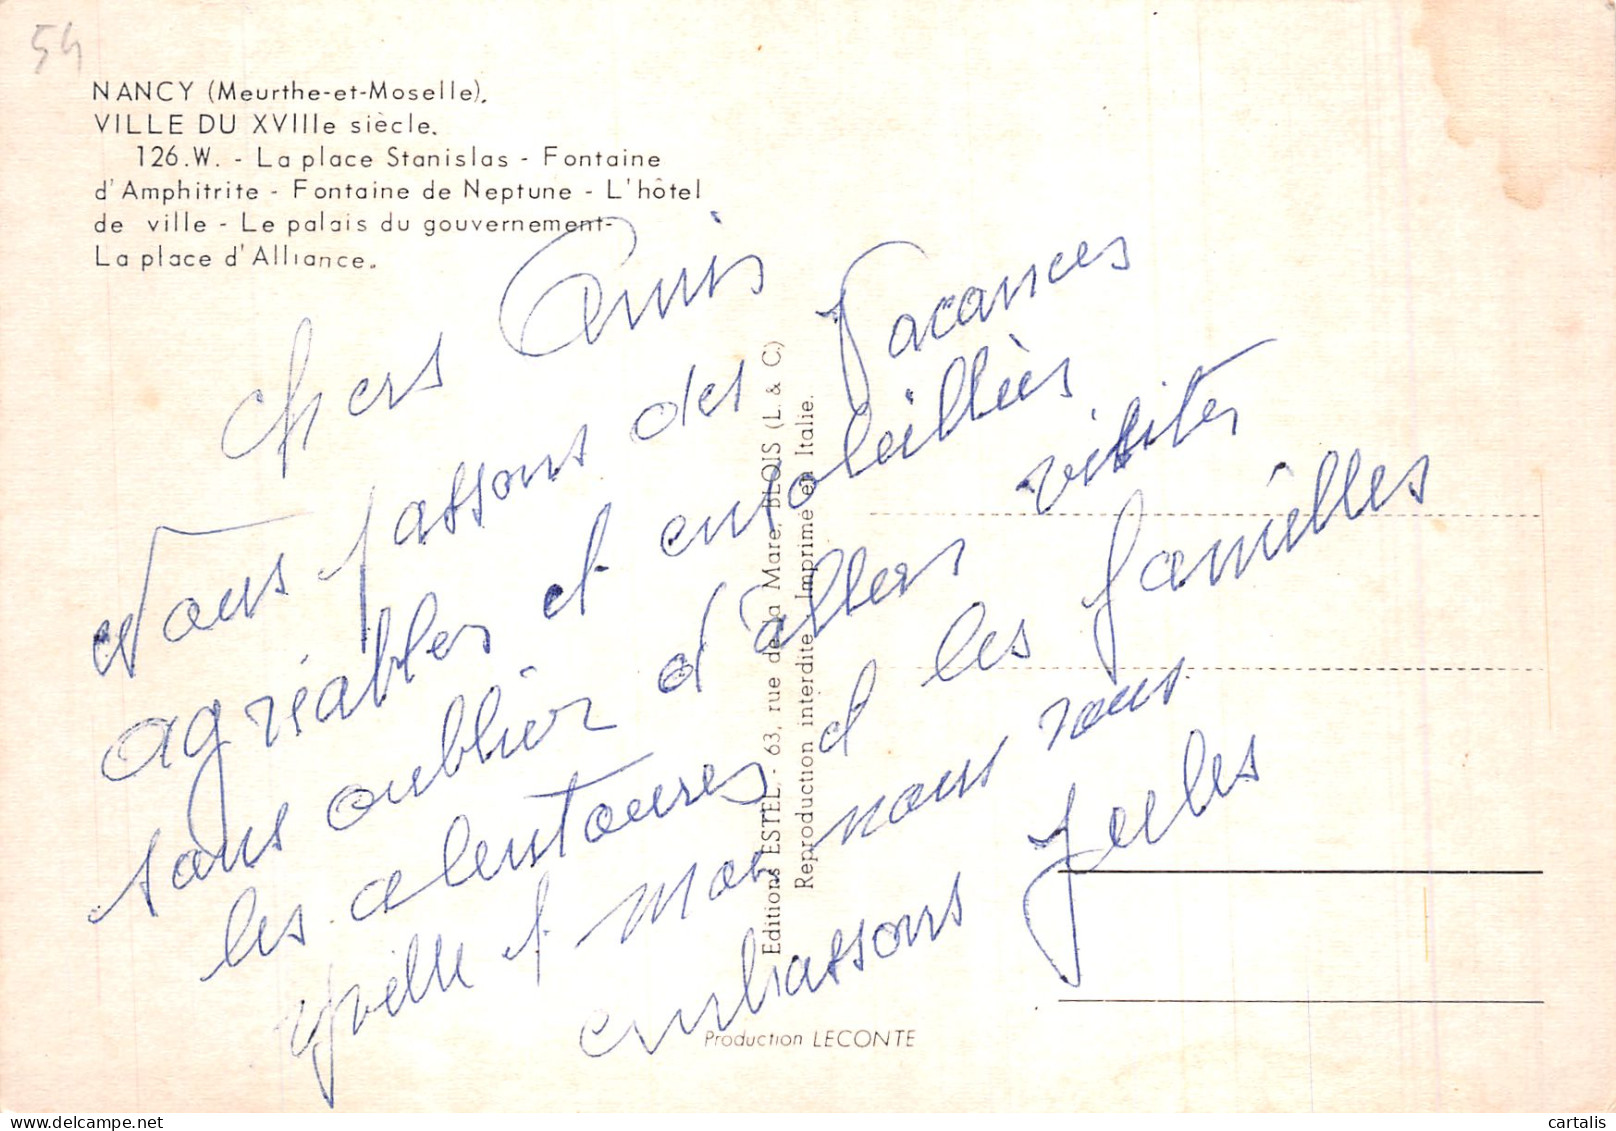 54
NANCY (Meurthe-et-Moselle).
VILLE DU XVIIIe siècle.
126.W. - La place Stanislas - Fontaine
d'Amphitrite - Fontaine de Neptune - L'hôtel
de ville - Le palais du gouvernement-
La place d'Alliance.
Chers Amis
Nous passons des Vacances
agréables et ensoleillès
sans oublier d'allers visiter
les alentoures et les familles
et moi nous vous
embrassons Jules
Editions ESTEL. - 63, rue de la Mare, BLOIS (L. & C.)
Reproduction interdite Imprimé en Italie.
Production LECONTE
delcampe.net
cartalis